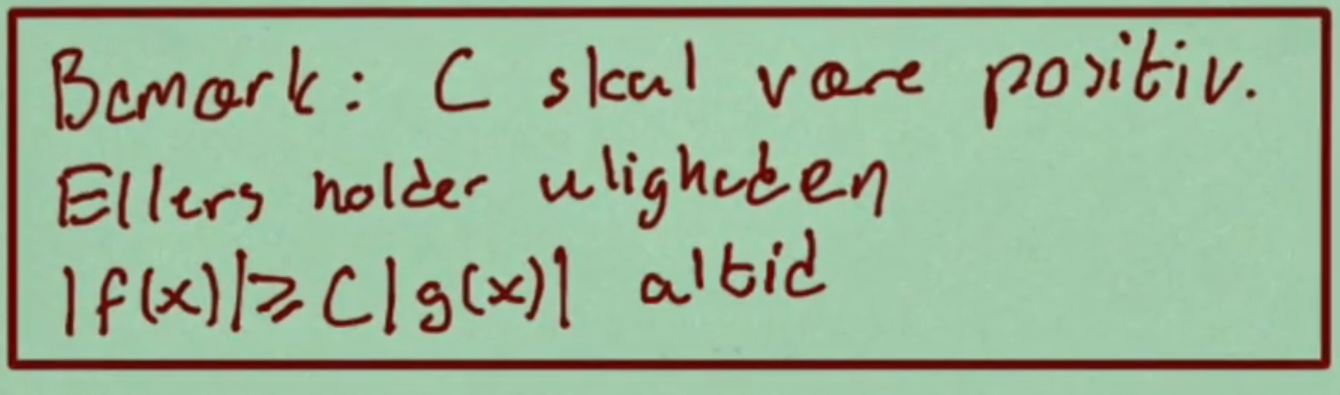 Bemærk: C skal være positiv.
Ellers holder uligheden
|f(x)|≥C|g(x)| altid